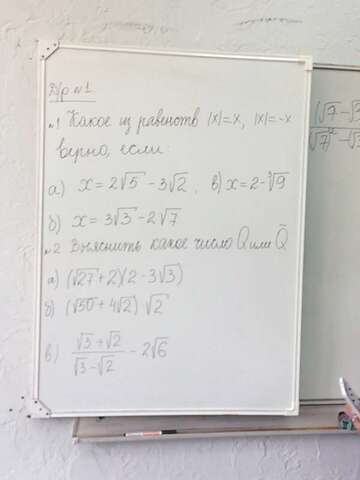 Д/р №1
№1 Какое из равенств |x|=x, |x|=-x
верно, если:
а) x=2√5-3√2, в) x=2-³√9
б) x=3√3-2√7
№2 Выяснить какое число Q или Q̄
а) (√27+2)(2-3√3)
б) (√50+4√2)√2
в) (√3+√2)/(√3-√2) - 2√6